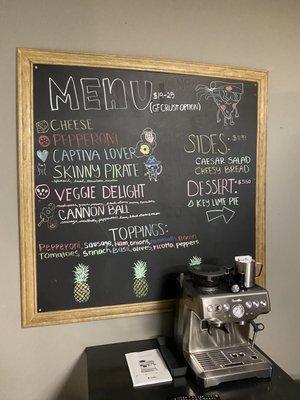 MENU $19-28
(GF CRUST OPTION)
CHEESE
PEPPERONI
CAPTIVA LOVER
SKINNY PIRATE
VEGGIE DELIGHT
CANNON BALL
SIDES:
CAESAR SALAD
CHEESY BREAD
DESSERT:
KEY LIME PIE
TOPPINGS:
Pepperoni, Sausage, Ham, onions, Bacon
Tomatoes, Spinach Basil, olives, Ricotta, peppers